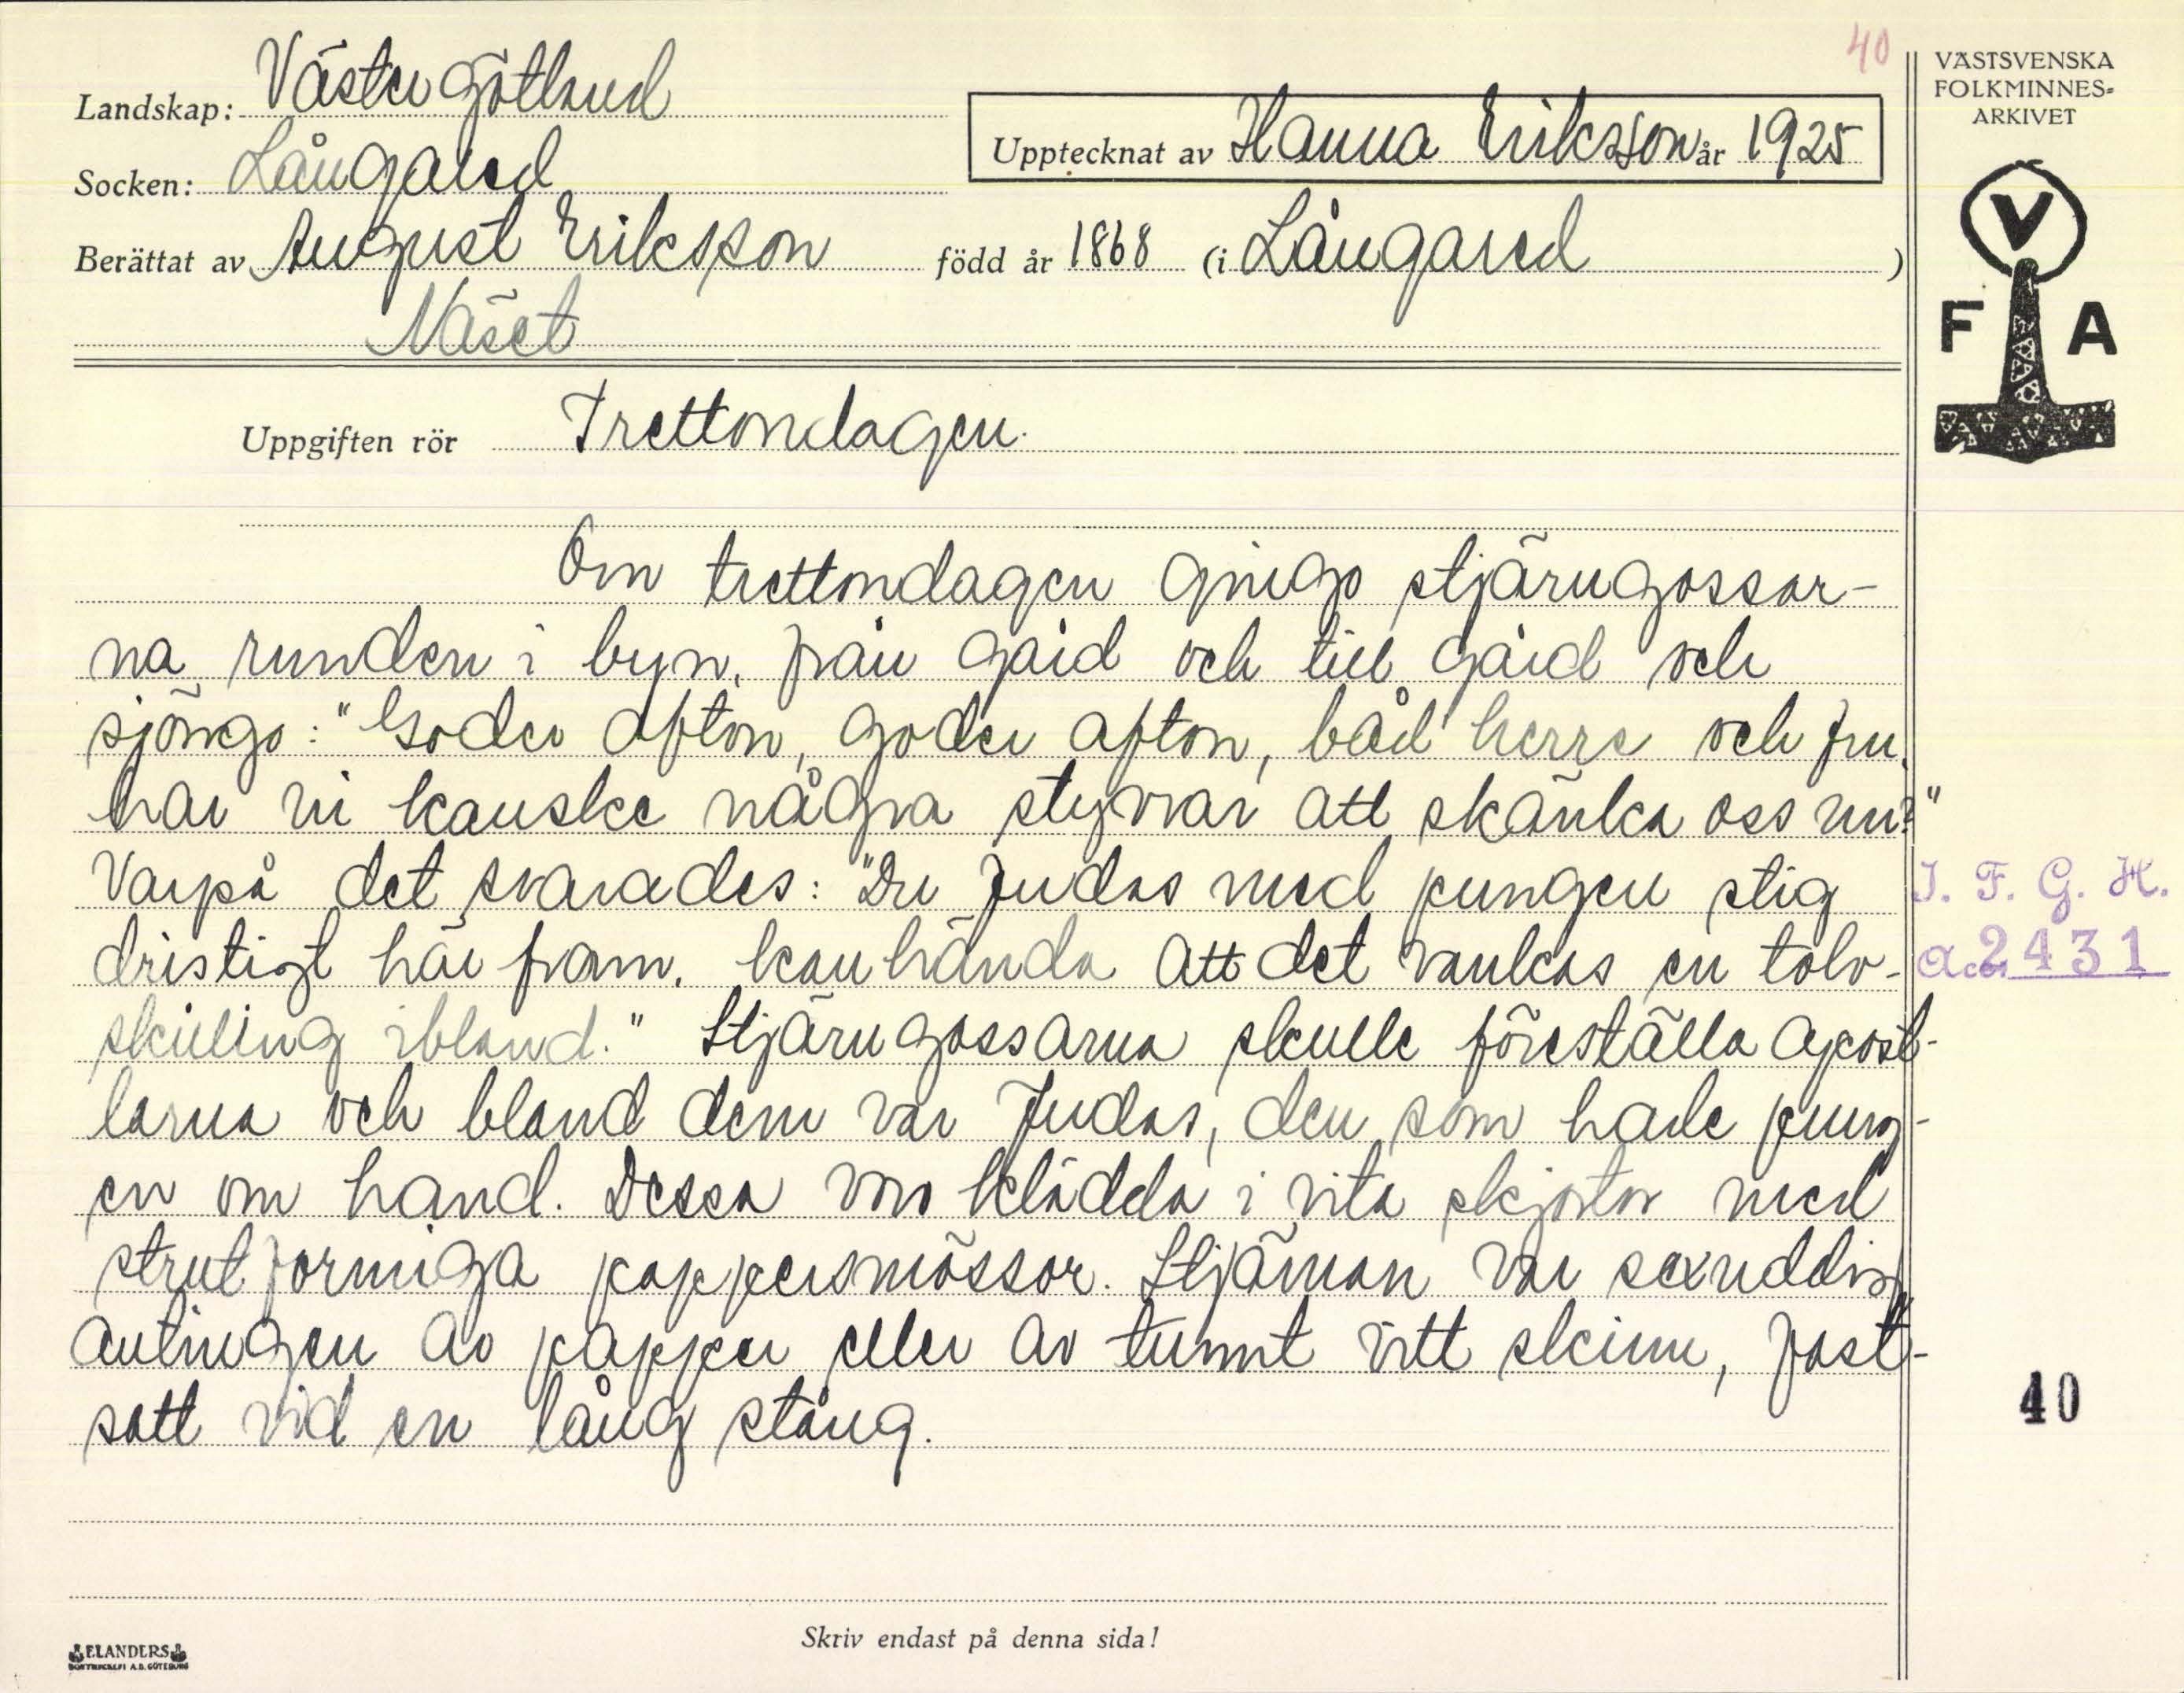 40
VÄSTSVENSKA
FOLKMINNES-
ARKIVET
Landskap: Västergötland
Upptecknat av Hanna Eriksson år 1925
Socken: Långared
Berättat av August Eriksson född år 1868 (i Långared )
Näset
V
F A
Uppgiften rör Trettondagen.
Om trettondagen gingo stjärngossar-
na runden i byn, från gård och till gård och
sjöngo: "Goder afton, goder afton, båd' herre och fru,
har ni kanske några styvrar att skänka oss nu?"
Varpå det svarades: "Du Judas med pungen stig
dristigt här fram, kanhända att det vankas en tolv-
skilling ibland." Stjärngossarna skulle föreställa apost-
larna och bland dem var Judas, den som hade pung-
en om hand. Dessa voro klädda i vita skjortor med
strutformiga pappersmössor. Stjärnan var sexuddig,
antingen av papper eller av tunnt vitt skinn, fast-
satt vid en lång stång.
I. F. G. H.
acc. 2431
40
Skriv endast på denna sida!
ELANDERS
BOKTRYCKERI A.B. GÖTEBORG